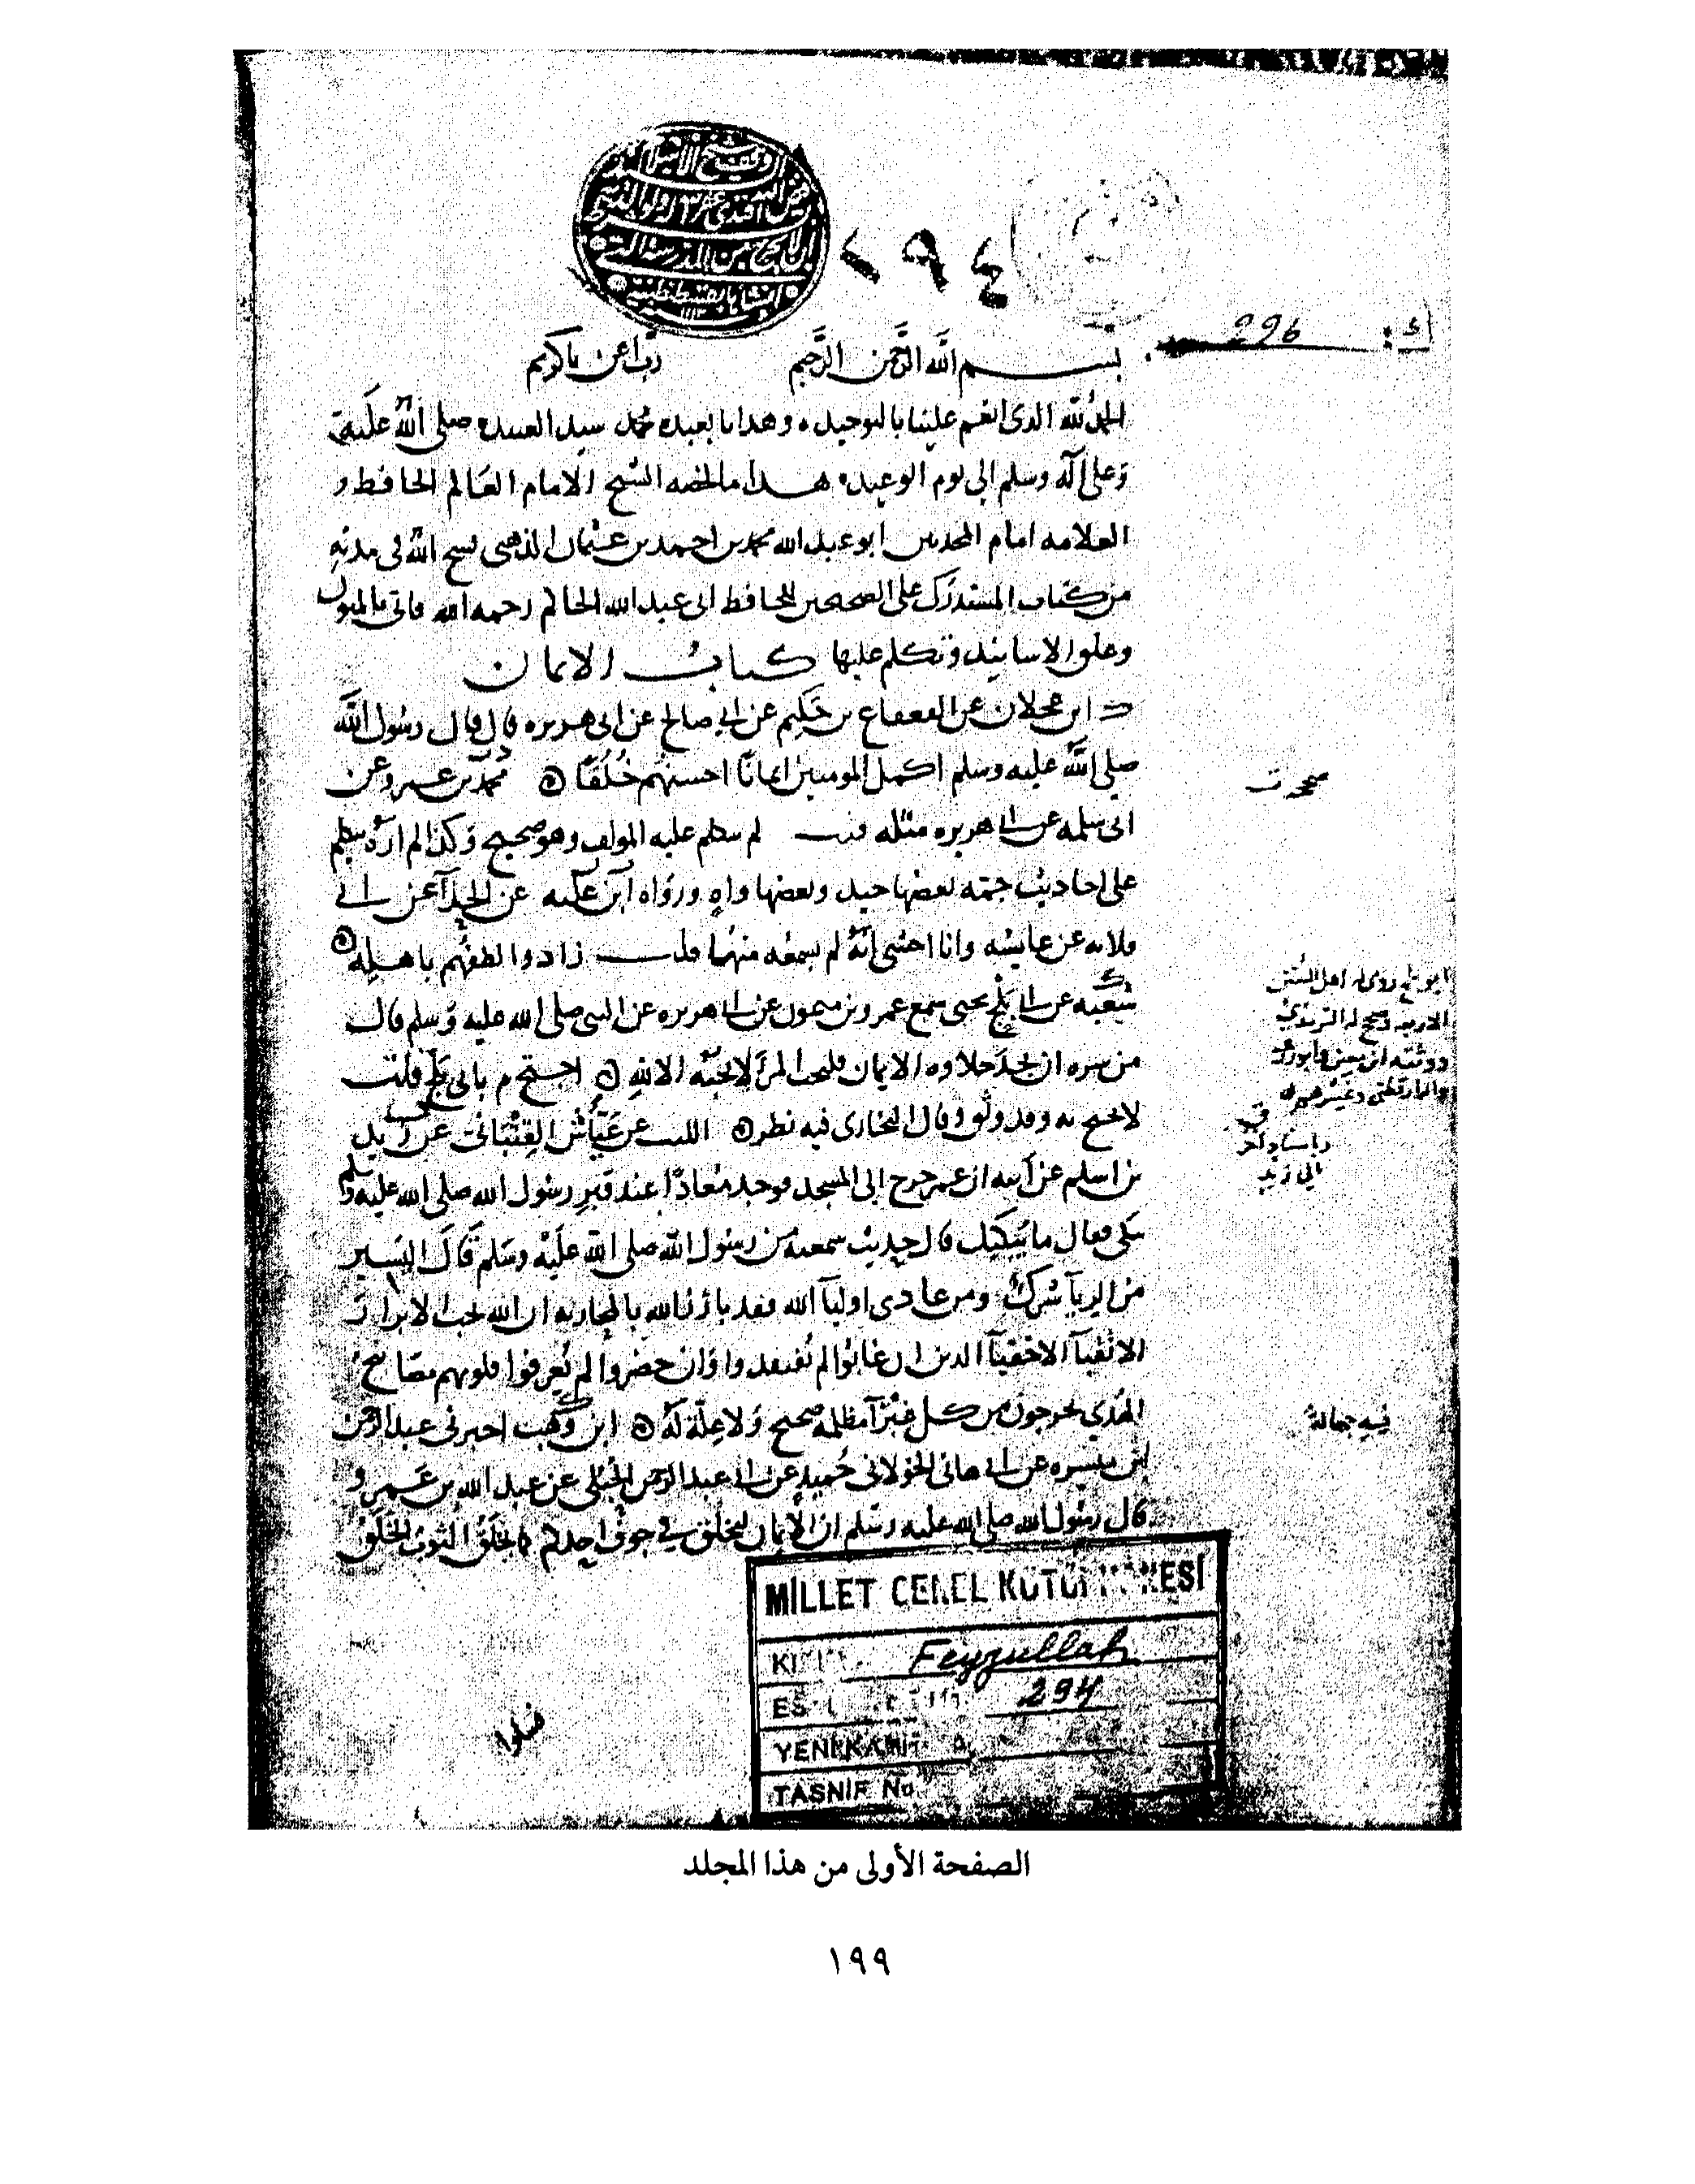 ١٩٤
296
بسم الله الرحمن الرحيم رب اعن يا كريم
الحمد لله الذى انعم علينا بالتوحيد وهدانا بعبده محمد سيد العبيد صلى الله عليه
وعلى آله وسلم الى يوم الوعيد هذا ما لخصه الشيخ الامام العالم الحافظ و
العلامه امام المحدثين ابو عبد الله محمد بن احمد بن عثمان الذهبى فسح الله فى مدته
من كتاب المستدرك على الصحيحين للحافظ ابى عبد الله الحاكم رحمه الله فاتى بالمتون
وعلو الاسانيد وتكلم عليها كتاب الايمان
ابن عجلان عن القعقاع بن حكيم عن ابي صالح عن ابى هريره قال قال رسول الله
صلى الله عليه وسلم اكمل المومنين ايمانًا احسنهم خُلُقًا محمد بن عمرو عن
ابى سلمه عن ابى هريره مثله قلت لم يتكلم عليه المولف وهو صحيح وكذا لم اره يتكلم
على احاديث جمه بعضها جيد وبعضها واهٍ ورواه ابن عليه عن الحذآ عن ابي
قلابه عن عايشه وانا اخشى انه لم يسمعه منها قلت زادوا الطفهم باهله
شعبه عن ابي بلج يحيى سمع عمرو بن ميمون عن ابى هريره عن النبى صلى الله عليه وسلم قال
من سره ان يجد حلاوه الايمان فليحب المرء لا يحبه الا لله احتج م بابى بلج قلت
لا يحتج به وقد وثق وقال البخارى فيه نظر الليث عن عيّاش القِتْبانى عن زيد
بن اسلم عن ابيه ان عمر خرج الى المسجد فوجد معاذًا عند قبر رسول الله صلى الله عليه وسلم
يبكى فقال ما يبكيك قال حديث سمعته من رسول الله صلى الله عليه وسلم قال اليسير
من الريآ شرك ومن عادى اوليآ الله فقد بارز الله بالمحاربه ان الله يحب الابرار
الاتقيآ الاخفيآ الذين ان غابوا لم يفتقدوا وان حضروا لم يعرفوا قلوبهم مصابيح
الهدى يخرجون من كل غبرآ مظلمه صحيح ولا علة له ابن وهب اخبرنى عبد الرحمن
ابن ميسره عن ابى هانى الخولانى حميد عن ابى عبد الرحمن الحُبُلى عن عبد الله بن عمرو
قال رسول الله صلى الله عليه وسلم ان الايمان ليخلق في جوف احدكم كما يخلق الثوب الخلق
ابو بلج روى له اهل السنن
الاربعه وصحح له الترمذى
ووثقه ابن معين وابو
والدارقطنى وغيرهم
باسناد آخر
الى زيد
MİLLET GENEL KÜTÜPHANESİ
Feyzullah
294
YENİ KAYIT
TASNİF No.
الصفحة الأولى من هذا المجلد
١٩٩